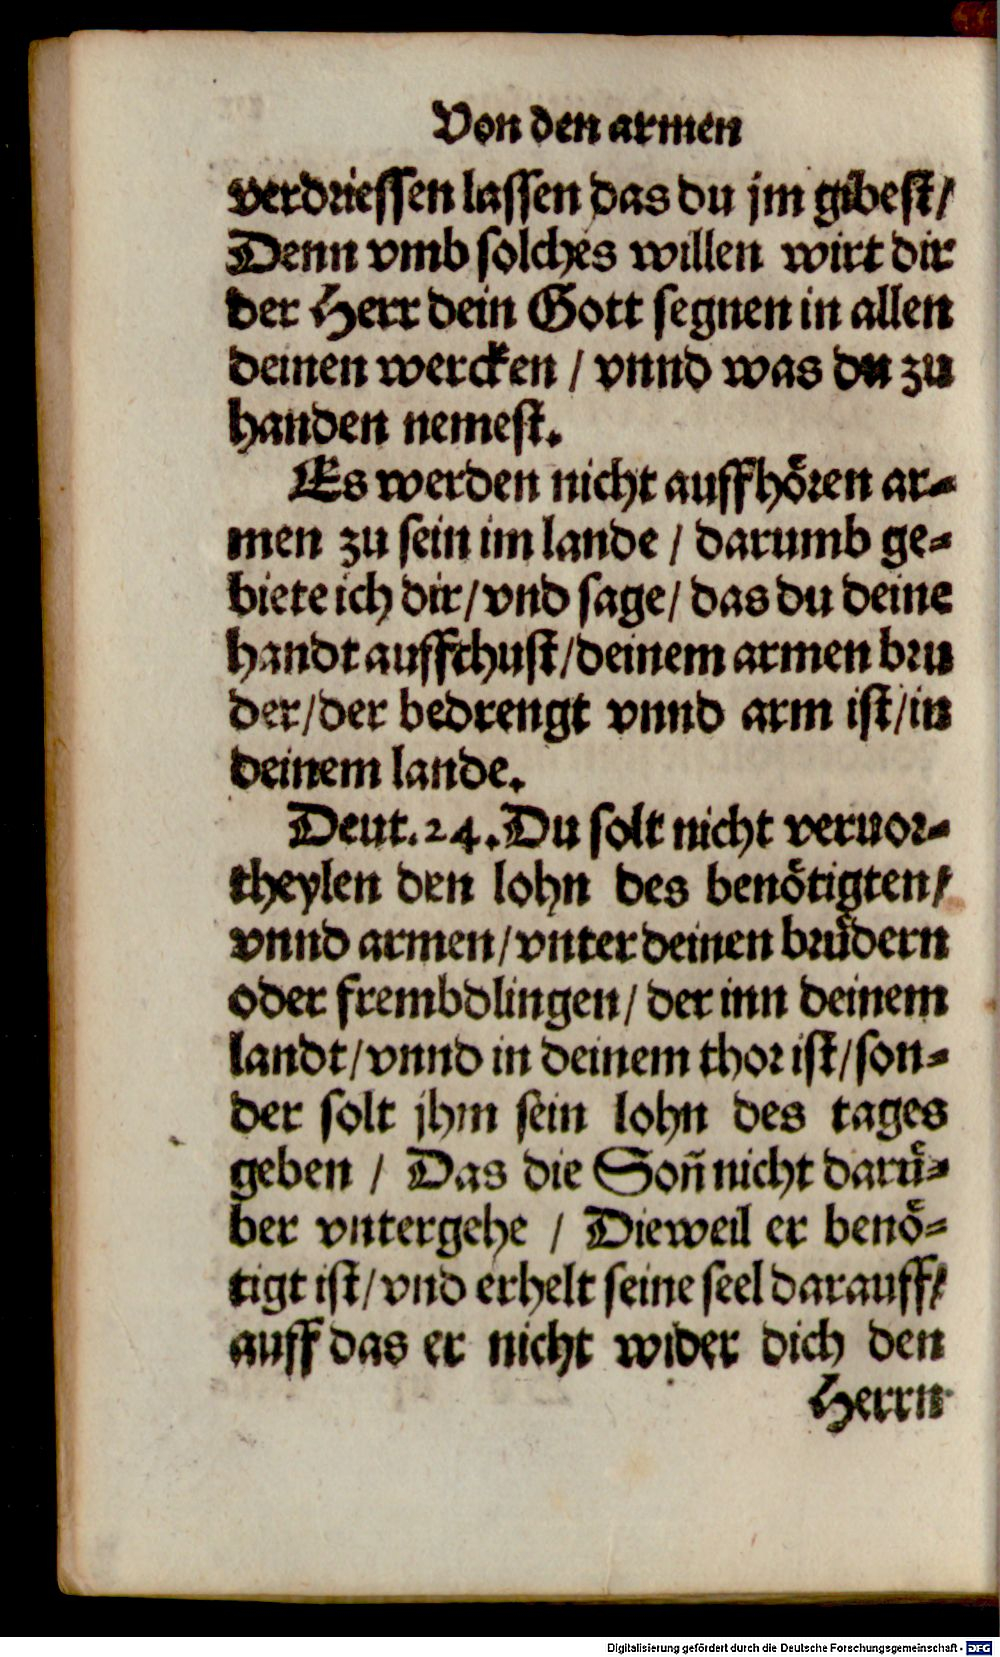 Von den armen
verdriessen lassen das du jm gibest/
Denn vmb solches willen wirt dir
der Herr dein Gott segnen in allen
deinen wercken / vnnd was du zu
handen nemest.
Es werden nicht auffhoͤren ar⸗
men zu sein im lande / darumb ge⸗
biete ich dir/ vnd sage/ das du deine
handt auffthust/ deinem armen bru
der/ der bedrengt vnnd arm ist/ in
deinem lande.
Deut. 24. Du solt nicht veruor⸗
theylen den lohn des benoͤtigten/
vnnd armen/ vnter deinen bruͤdern
oder frembdlingen/ der inn deinem
landt/ vnnd in deinem thor ist/ son⸗
der solt jhm sein lohn des tages
geben / Das die Soñ nicht daruͤ⸗
ber vntergehe / Dieweil er benoͤ⸗
tigt ist/ vnd erhelt seine seel darauff/
auff das er nicht wider dich den
Herrn
Digitalisierung gefördert durch die Deutsche Forschungsgemeinschaft - DFG